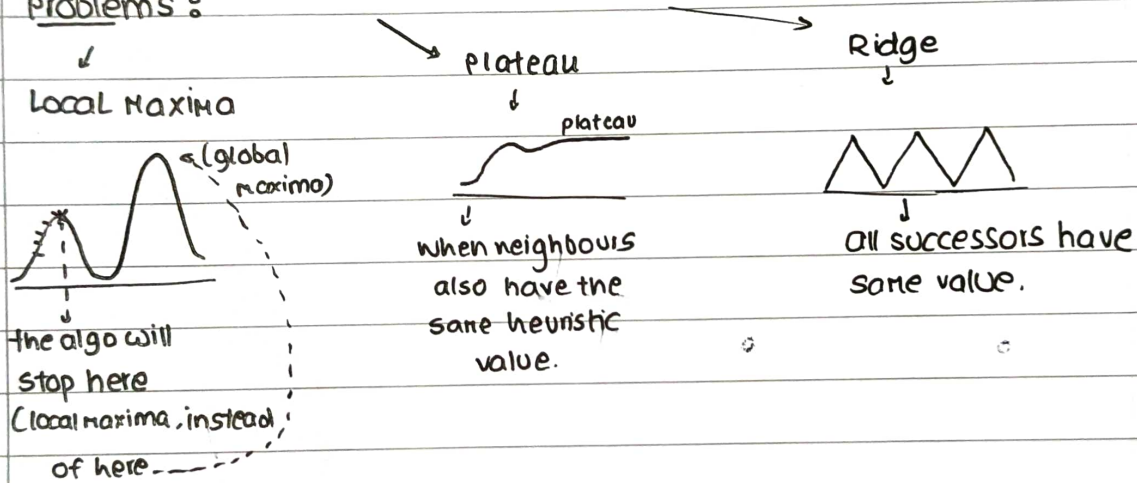 Problems :
Local Maxima
(global
maxima)
the algo will
stop here
(local maxima, instead
of here
Plateau
plateau
when neighbours
also have the
same heuristic
value.
Ridge
all successors have
same value.